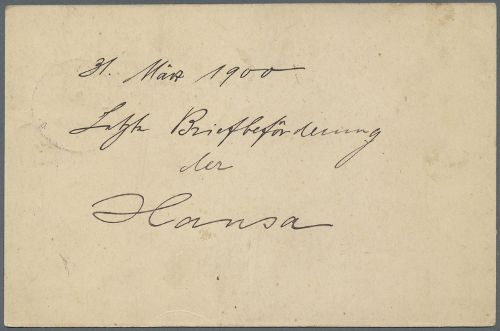 31. März 1900
Letzte Briefbeförderung
der
Hansa